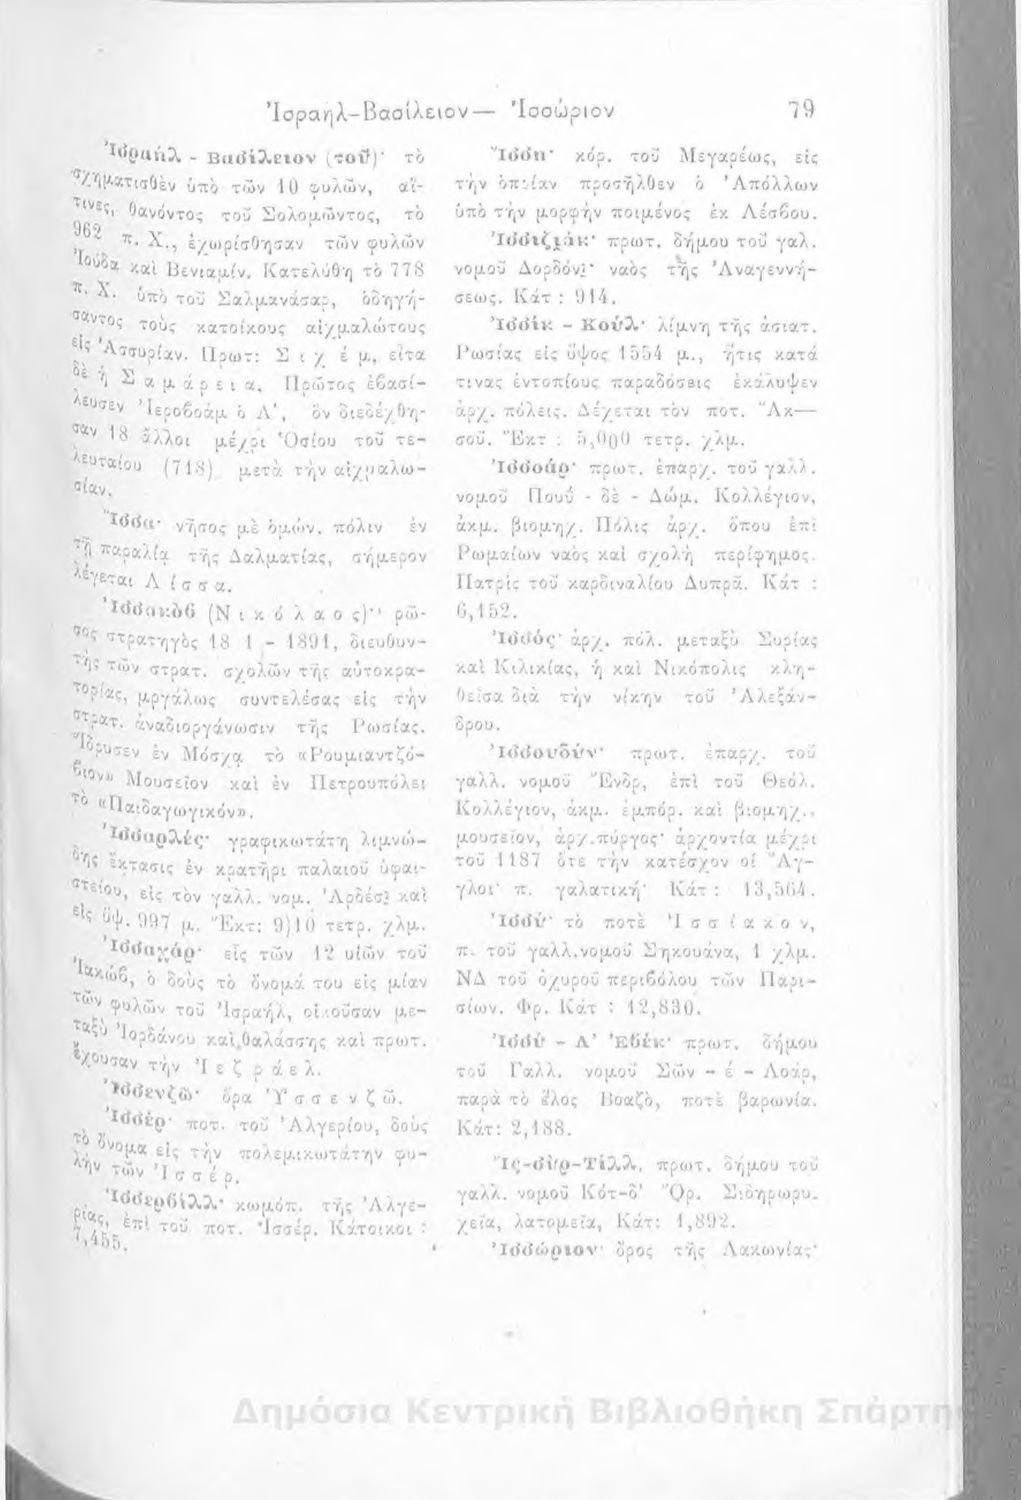 Ἰσραήλ-Βασίλειον— Ἰσσώριον 79
Ἰσραήλ - Βασίλειον (τοῦ)· τὸ
σχηματισθὲν ὑπὸ τῶν 10 φυλῶν, αἵ-
τινες, θανόντος τοῦ Σολομῶντος, τὸ
962 π. Χ., ἐχωρίσθησαν τῶν φυλῶν
Ἰούδα καὶ Βενιαμίν. Κατελύθη τὸ 778
π. Χ. ὑπὸ τοῦ Σαλμανάσαρ, ὁδηγή-
σαντος τοὺς κατοίκους αἰχμαλώτους
εἰς Ἀσσυρίαν. Πρωτ: Σιχέμ, εἶτα
δὲ ἡ Σαμάρεια. Πρῶτος ἐβασί-
λευσεν Ἱεροβοὰμ ὁ Α', ὃν διεδέχθη-
σαν 18 ἄλλοι μέχρι Ὁσίου τοῦ τε-
λευταίου (718) μετὰ τὴν αἰχμαλω-
σίαν.
Ἴσσα· νῆσος μὲ ὁμών. πόλιν ἐν
τῇ παραλίᾳ τῆς Δαλματίας, σήμερον
λέγεται Λίσσα.
Ἰσσακὸφ (Νικόλαος)·· ρῶ-
σος στρατηγὸς 18 1 - 1891, διευθυν-
τὴς τῶν στρατ. σχολῶν τῆς αὐτοκρα-
τορίας, μργάλως συντελέσας εἰς τὴν
στρατ. ἀναδιοργάνωσιν τῆς Ρωσίας.
Ἵδρυσεν ἐν Μόσχᾳ τὸ «Ρουμιαντζό-
βιον» Μουσεῖον καὶ ἐν Πετρουπόλει
τὸ «Παιδαγωγικόν».
Ἰσσαρλές· γραφικωτάτη λιμνώ-
δης ἔκτασις ἐν κρατῆρι παλαιοῦ ὑφαι-
στείου, εἰς τὸν γαλλ. νομ. Ἀρδέσ] καὶ
εἰς ὕψ. 997 μ. Ἔκτ: 9)10 τετρ. χλμ.
Ἰσσαχάρ· εἷς τῶν 12 υἱῶν τοῦ
Ἰακώβ, ὁ δοὺς τὸ ὄνομά του εἰς μίαν
τῶν φυλῶν τοῦ Ἰσραήλ, οἰκοῦσαν με-
ταξὺ Ἰορδάνου καὶ θαλάσσης καὶ πρωτ.
ἔχουσαν τὴν Ἰεζράελ.
Ἰσσενζῶ· ὅρα Ὑσσενζῶ.
Ἰσσέρ· ποτ. τοῦ Ἀλγερίου, δοὺς
τὸ ὄνομα εἰς τὴν πολεμικωτάτην φυ-
λὴν τῶν Ἰσσέρ.
Ἰσσερβὶλλ· κωμόπ. τῆς Ἀλγε-
ρίας, ἐπὶ τοῦ ποτ. Ἰσσέρ. Κάτοικοι :
7,455.
Ἴσση· κόρ. τοῦ Μεγαρέως, εἰς
τὴν ὁποίαν προσῆλθεν ὁ Ἀπόλλων
ὑπὸ τὴν μορφὴν ποιμένος ἐκ Λέσβου.
Ἰσσιζιάκ· πρωτ. δήμου τοῦ γαλ.
νομοῦ Δορδόν]· ναὸς τῆς Ἀναγεννή-
σεως. Κάτ : 914.
Ἰσσὶκ - Κούλ· λίμνη τῆς ἀσιατ.
Ρωσίας εἰς ὕψος 1554 μ., ἥτις κατά
τινας ἐντοπίους παραδόσεις ἐκάλυψεν
ἀρχ. πόλεις. Δέχεται τὸν ποτ. Ἄκ—
σοῦ. Ἔκτ : 5,000 τετρ. χλμ.
Ἰσσοάρ· πρωτ. ἐπαρχ. τοῦ γαλλ.
νομοῦ Πουῢ - δὲ - Δώμ. Κολλέγιον,
ἀκμ. βιομηχ. Πόλις ἀρχ. ὅπου ἐπὶ
Ρωμαίων ναὸς καὶ σχολὴ περίφημος.
Πατρὶς τοῦ καρδιναλίου Δυπρᾶ. Κάτ :
6,152.
Ἰσσός· ἀρχ. πόλ. μεταξὺ Συρίας
καὶ Κιλικίας, ἡ καὶ Νικόπολις κλη-
θεῖσα διὰ τὴν νίκην τοῦ Ἀλεξάν-
δρου.
Ἰσσουδύν· πρωτ. ἐπαρχ. τοῦ
γαλλ. νομοῦ Ἔνδρ, ἐπὶ τοῦ Θεόλ.
Κολλέγιον, ἀκμ. ἐμπόρ. καὶ βιομηχ.,
μουσεῖον, ἀρχ.πύργος· ἀρχοντία μέχρι
τοῦ 1187 ὅτε τὴν κατέσχον οἱ Ἄγ-
γλοι· π. γαλατική· Κάτ : 13,564.
Ἰσσύ· τὸ ποτὲ Ἰσσίακον,
π. τοῦ γαλλ.νομοῦ Σηκουάνα, 1 χλμ.
ΝΔ τοῦ ὀχυροῦ περιβόλου τῶν Παρι-
σίων. Φρ. Κάτ : 12,830.
Ἰσσὺ - Λ' Ἐβέκ· πρωτ. δήμου
τοῦ Γαλλ. νομοῦ Σῶν - ἐ - Λοάρ,
παρὰ τὸ ἕλος Βοαζό, ποτὲ βαρωνία.
Κάτ: 2,188.
Ἴς-σὺρ-Τίλλ, πρωτ. δήμου τοῦ
γαλλ. νομοῦ Κότ-δ' Ὄρ. Σιδηρωρυ-
χεῖα, λατομεῖα, Κάτ: 1,892.
Ἰσσώριον· ὄρος τῆς Λακωνίας·
Δημόσια Κεντρική Βιβλιοθήκη Σπάρτη